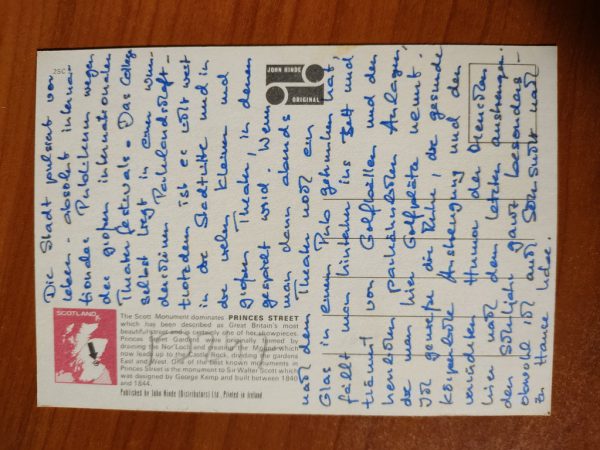 Die Stadt pulsiert vor
Leben - absolut interna-
tionales Publikum wegen
des großen internationalen
Theaterfestivals. Das College
selbst liegt in einer wun-
derschönen Parklandschaft -
trotzdem ist es nicht weit
in die Stadtmitte und in
die vielen kleinen und
großen Theater, in denen
gespielt wird. Wenn
man dann abends
nach dem Theater noch ein
Glas in einem Pub getrunken hat,
fällt man hinterher ins Bett und
träumt von Golfbällen und den
herrlichen parkähnlichen Anlagen,
die man hier Golfplätze nennt.
Ich genieße die Ruhe, die gesunde
körperliche Anstrengung und den
verrückten Humor der Menschen
hier nach dem letzten anstrengen-
den Schuljahr ganz besonders -
obwohl ich auch Sehnsucht nach
zu Hause habe.
2SC
JOHN HINDE
ORIGINAL
SCOTLAND
The Scott Monument dominates PRINCES STREET
which has been described as Great Britain's most
beautiful street and is certainly one of her showpieces.
Princes Street Gardens were originally formed by
draining the Nor' Loch and creating the Mound which
now leads up to the Castle Rock, dividing the gardens
East and West. One of the best known monuments in
Princes Street is the monument to Sir Walter Scott which
was designed by George Kemp and built between 1840
and 1844.
Published by John Hinde (Distributors) Ltd., Printed in Ireland